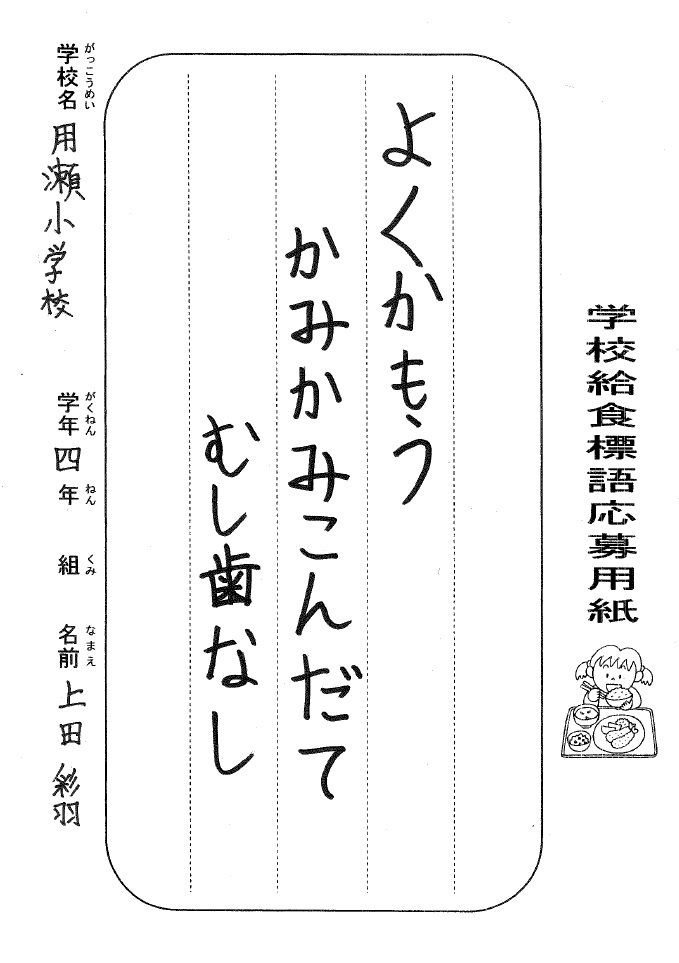 学校給食標語応募用紙
よくかもう
かみかみこんだて
むし歯なし
学校名 がっこうめい 用瀬小学校 学年 がくねん 四 年 ねん 組 くみ 名前 なまえ 上田 彩羽